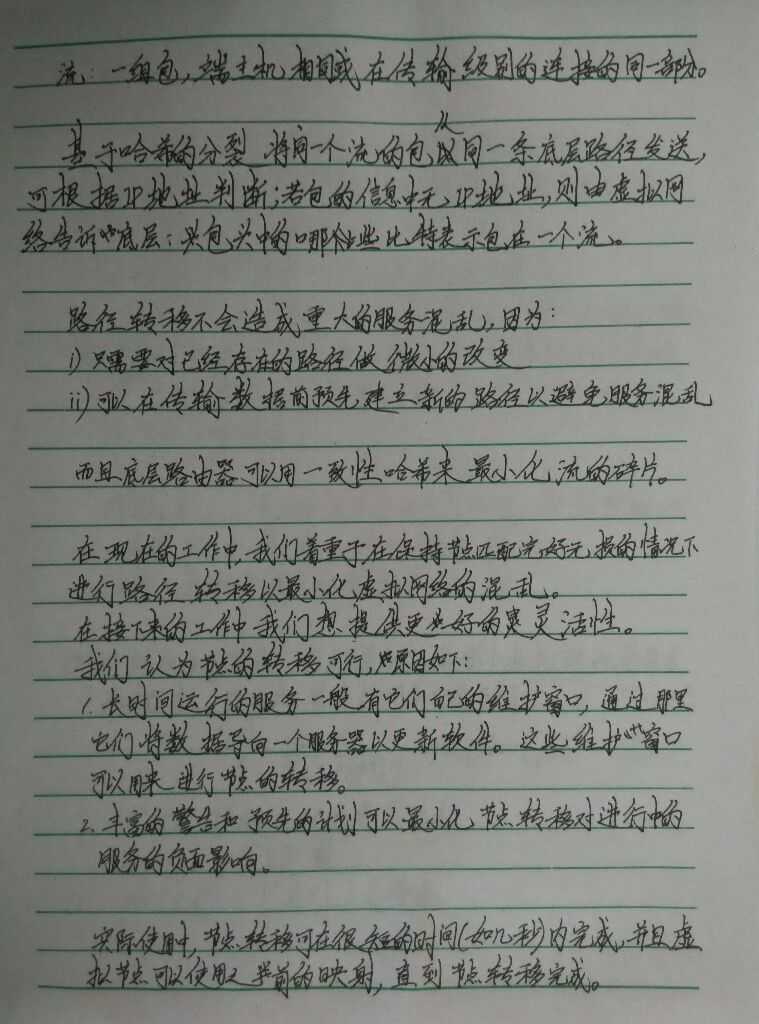 流：一组包，端主机相同或在传输级别的连接的同一部分。
基于哈希的分裂 将同一个流的包从同一条底层路径发送，
可根据IP地址判断；若包的信息中无IP地址，则由虚拟网
络告诉底层：包头中的哪些比特表示包在一个流。
路径转移不会造成重大的服务混乱，因为：
i) 只需要对已经存在的路径做微小的改变
ii) 可以在传输数据前预先建立新的路径以避免服务混乱
而且底层路由器可以用一致性哈希来最小化流的碎片。
在现在的工作中，我们着重于在保持节点匹配完好无损的情况下
进行路径转移以最小化虚拟网络的混乱。
在接下来的工作中我们想提供更好的灵活性。
我们认为节点的转移可行，原因如下：
1. 长时间运行的服务一般有它们自己的维护窗口，通过那里
它们将数据导向一个服务器以更新软件。这些维护窗口
可以用来进行节点的转移。
2. 丰富的警告和预先的计划可以最小化节点转移对进行中的
服务的负面影响。
实际使用中，节点转移可在很短的时间(如几秒)内完成，并且虚
拟节点可以使用当前的映射，直到节点转移完成。